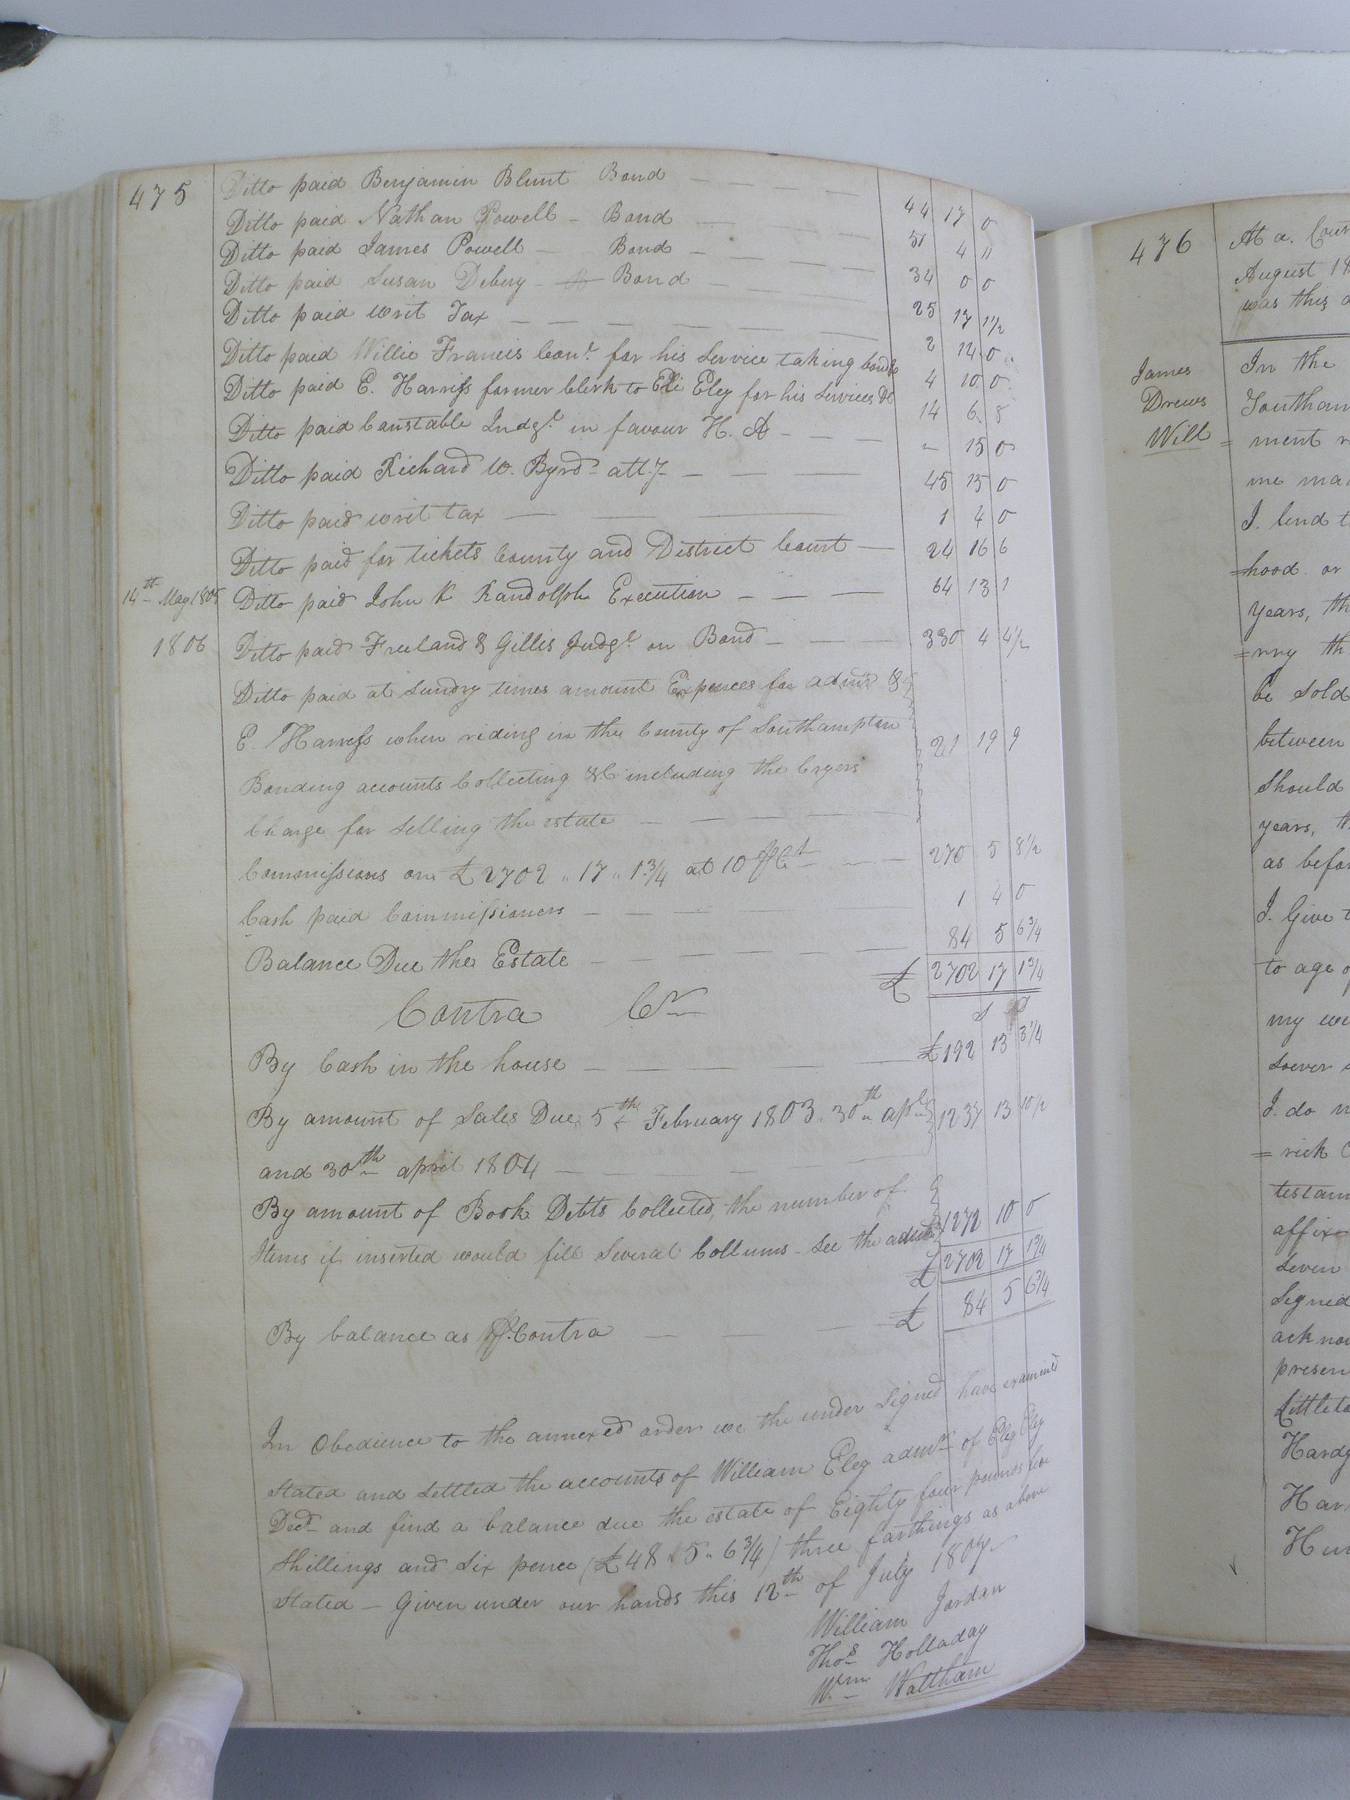 475
Ditto paid Benjamin Blunt Bond — — — — 44 17 0
Ditto paid Nathan Powell — Bond — — — 51 4 "
Ditto paid James Powell — Bond — — — — 34 0 0
Ditto paid Susan Debery — Bond — — — — 25 17 1 1/2
Ditto paid writ Tax — — — — — — 2 14 0
Ditto paid Willie Francis Conr. for his Service taking bonds 4 10 0
Ditto paid E. Harriss former Clerk to Eli Eley for his Services &c 14 6 8
Ditto paid Constable Judgt. in favour H. A — — — " 15 0
Ditto paid Richard W. Byrd atty — — 45 15 0
Ditto paid writ tax — — — 1 4 0
Ditto paid for tickets County and District Court — 24 16 6
14th May 1805 Ditto paid John K Randolph Execution — — — 64 13 1
1806 Ditto paid Freeland & Gilles Judgt. on Bond — — — 330 4 4 1/2
Ditto paid at Sundry times amount Expences for admr &
E. Harriss when riding in the County of Southampton
Bonding accounts Collecting &c including the Cryers 21 19 9
Charge for Selling the estate — — — —
Commissions on £2702 " 17 " 1 3/4 at 10 P Ct — — — 270 5 8 1/2
Cash paid Commissioners — — — — 1 4 0
Balance Due the Estate — — — — — 84 5 6 3/4
£ 2702 17 1 3/4
Contra Cr S
By Cash in the house — — — — — £192 13 3 1/4
By amount of Sales Due 5th February 1803. 30th apl. 1237 13 10 1/2
and 30th april 1804 — — — —
By amount of Book Debts Collected, the number of
Items if inserted would fill Several Collums — See the 1272 10 0
£ 2702 17 1 3/4
By balance as P. Contra — — — £ 84 5 6 3/4
In Obedience to the annexed order we the under Signed have examined
Stated and Settled the accounts of William Eley admr. of Eley
Decd. and find a balance due the estate of Eighty four pounds five
Shillings and Six pence (£48 " 5 " 6 3/4) three farthings as above
Stated — Given under our hands this 12th of July 1807
William Jordan
Thos. Holladay
Wm. Waltham
476
At a Cour
August 18
was this
James
Drews
Will
In the
Southam
= ment
me ma
I. lend t
=hood or
years, th
=rry th
be Sold
between
Should
years, t
as befor
I. Give t
to age o
my we
soever
I. do
= rick
testam
affixe
Seven
Signed
acknow
presen
Littleto
Hardy
Har